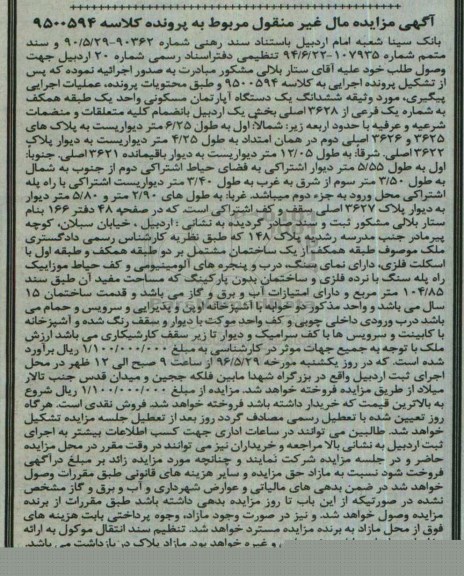 آگهی مزایده مال غیر منقول مربوط به پرونده کلاسه ۹۵۰۰۵۹۴
بانک سینا شعبه امام اردبیل باستناد سند رهنی شماره ۹۰۳۶۲-۹۰/۵/۲۹ و سند
متمم شماره ۱۰۷۹۳۵-۹۴/۶/۲۲ تنظیمی دفتر اسناد رسمی شماره ۲۰ اردبیل جهت
وصول طلب خود علیه آقای ستار بلالی مشکور مبادرت به صدور اجرائیه نموده که پس
از تشکیل پرونده اجرایی به کلاسه ۹۵۰۰۵۹۴ و طبق محتویات پرونده، عملیات اجرایی
پیگیری، مورد وثیقه ششدانگ یک دستگاه آپارتمان مسکونی واحد یک طبقه همکف
به شماره یک فرعی از ۳۶۲۸ اصلی بخش یک اردبیل بانضمام کلیه متعلقات و منضمات
شرعیه و عرفیه با حدود اربعه زیر: شمالا: اول به طول ۶/۲۵ متر دیواریست به پلاک های
۳۶۲۵ و ۳۶۲۶ اصلی دوم در همان امتداد به طول ۴/۲۵ متر دیواریست به دیوار پلاک
۳۶۲۲ اصلی. شرقا: به طول ۱۲/۰۵ متر دیواریست به دیوار باقیمانده ۳۶۲۱ اصلی. جنوبا:
اول به طول ۵/۵۵ متر دیوار اشتراکی به فضای حیاط اشتراکی دوم از جنوب به شمال
به طول ۳/۵۰ متر سوم از شرق به غرب به طول ۳/۴۰ متر دیواریست اشتراکی با راه پله
اشتراکی محل ورود به جزء دوم میباشد. غربا: به طول های ۲/۹۰ متر و ۵/۸۰ متر دیوار
به دیوار پلاک ۳۶۲۷ اصلی سقف و کف اشتراکی است. که در صفحه ۴۸ دفتر ۱۶۶ بنام
ستار بلالی مشکور ثبت و سند صادر گردیده به نشانی: اردبیل، خیابان سبلان، کوچه
پیرمادر جنب مدرسه رشدیه پلاک ۱۴۸ که طبق نظریه کارشناس رسمی دادگستری
ملک موصوف طبقه همکف از یک ساختمان مشتمل بر دو طبقه همکف و طبقه اول با
اسکلت فلزی، دارای نمای سنگ، درب و پنجره های آلومینیومی و کف حیاط موزاییک
راه پله سنگ با نرده فلزی و ساختمان بدون پارکینگ که مساحت مفید آن طبق سند
۱۰۴/۸۵ متر مربع و دارای امتیازات آب و برق و گاز می باشد و قدمت ساختمان ۱۵
سال می باشد و واحد مذکور دو خوابه با آشپزخانه اوپن و پذیرایی و سرویس و حمام می
باشد درب ورودی داخلی چوبی و کف واحد موکت با دیوار و سقف رنگ شده و آشپزخانه
با کابینت و سرویس ها با کف سرامیک و دیوار تا زیر سقف کارشیکاری می باشد ارزش
ملک با توجه به جمیع جهات موثر در کارشناسی به مبلغ ۱/۱۰۰/۰۰۰/۰۰۰ ریال برآورد
شده است. که در روز یکشنبه مورخه ۹۶/۵/۲۹ از ساعت ۹ صبح الی ۱۲ ظهر در محل
اجرای ثبت اردبیل واقع در بزرگراه شهدا مابین فلکه ججین و میدان قدس جنب تالار
میلاد از طریق مزایده فروخته خواهد شد. مزایده از مبلغ ۱/۱۰۰/۰۰۰/۰۰۰ ریال شروع
به بالاترین قیمت که خریدار داشته باشد فروخته خواهد شد. فروش نقدی است. هرگاه
روز تعیین شده با تعطیل رسمی مصادف گردد روز بعد از تعطیل جلسه مزایده تشکیل
خواهد شد. طالبین می توانند در ساعات اداری جهت کسب اطلاعات بیشتر به اجرای
ثبت اردبیل به نشانی بالا مراجعه و خریداران نیز می توانند در وقت مقرر در محل مزایده
حاضر و در جلسه مزایده شرکت نمایند و چنانچه مورد مزایده زائد بر مبلغ در آگهی
فروخت شود نسبت به مازاد حق مزایده و سایر هزینه های قانونی طبق مقررات وصول
خواهد شد در ضمن بدهی های مالیاتی و عوارض شهرداری و آب و برق و گاز مشخص
نشده در صورتیکه از این باب تا روز مزایده بدهی داشته باشد طبق مقررات از برنده
مزایده وصول خواهد شد. و نیز در صورت وجود مازاد، وجوه پرداختی بابت هزینه های
فوق از محل مازاد به برنده مزایده مسترد خواهد شد. تنظیم سند انتقال موکول به ارائه
و غیره خواهد بود. مازاد پلاک در بازداشت می باشد.